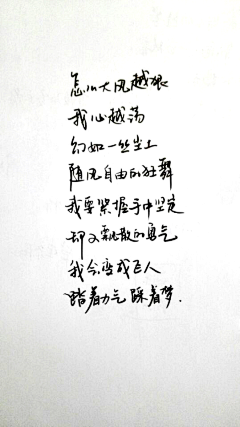 怎么大风越狠
我心越荡
幻如一丝尘土
随风自由的狂舞
我要紧握手中坚定
却又飘散的勇气
我会变成巨人
踏着力气 踩着梦.